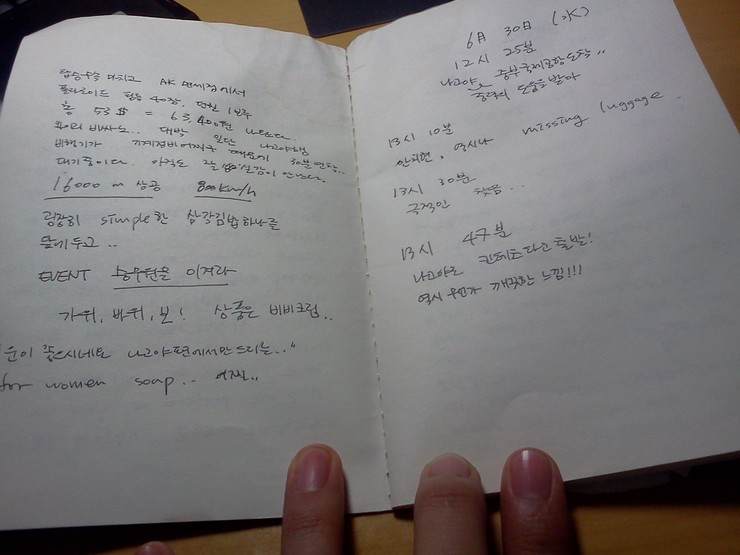 탑승수속 마치고 AK 면세점에서
폴라로이드 필름 40장, 면세
총 53$ = 63,400원
비싸.. 대박 일단 나고야행
비행기가 기계정비 때문에 30분 연착..
대기중이다. 아직도 잘 실감이 안난다.
16000 m 상공 800km/h
굉장히 simple한 삼각김밥 하나를
두고..
EVENT 승무원을 이겨라
가위, 바위, 보! 상품은 비비크림..
운이 좋으시네요 나고야편에서만 드리는.."
for women soap.. 어찌..
6月 30日 (水)
12시 25분
나고야 중부국제공항 도착..
도움을 받아
13시 10분
역시나 missing luggage
13시 30분
극적인 찾음..
13시 47분
나고야로 타고 출발!
역시 뭔가 깨끗한 느낌!!!